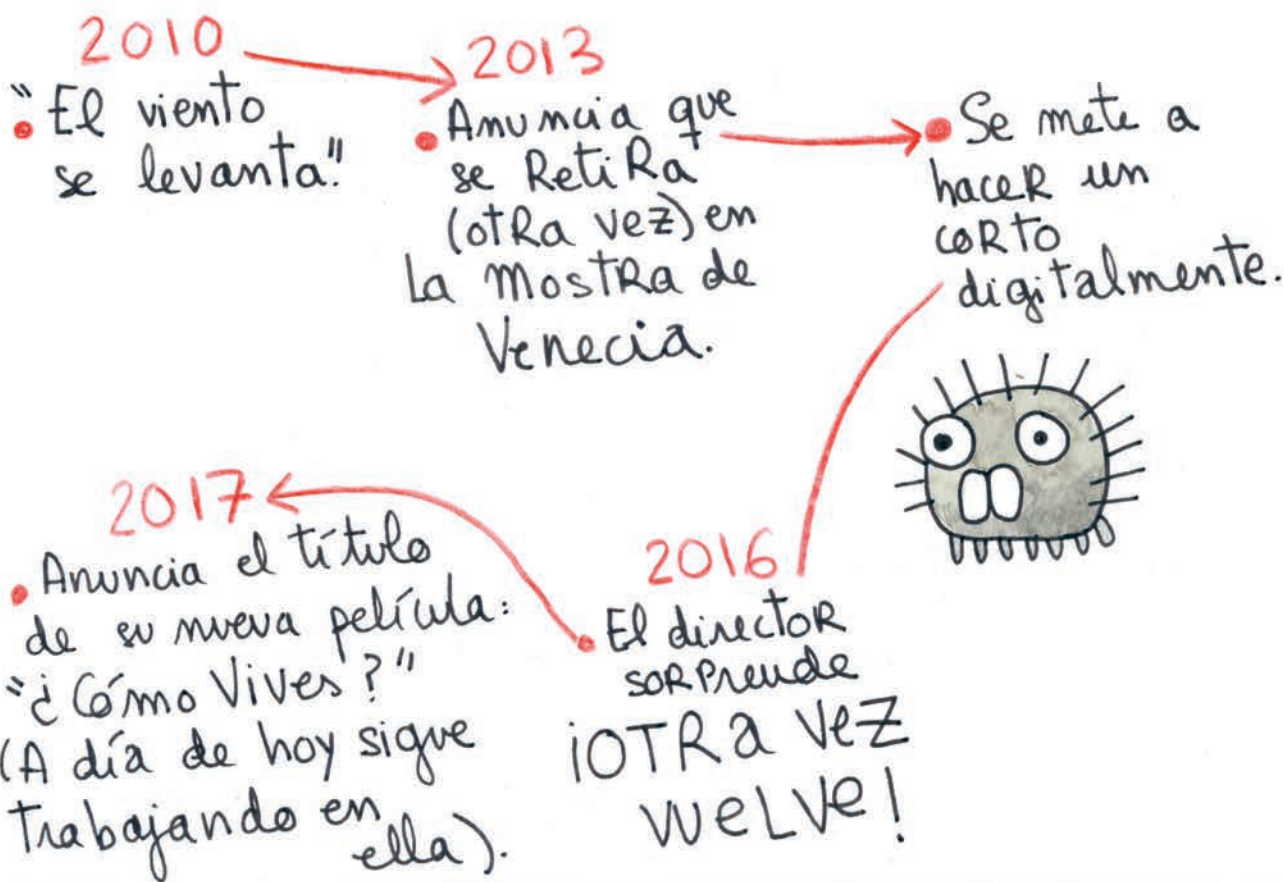 2010
"El viento
se levanta".
2013
Anuncia que
se Retira
(otra vez) en
La Mostra de
Venecia.
Se mete a
hacer un
corto
digitalmente.
2016
El director
sorprende
¡OTRA VEZ
VUELVE!
2017
Anuncia el título
de su nueva película:
"¿Cómo Vives?"
(A día de hoy sigue
Trabajando en
ella).